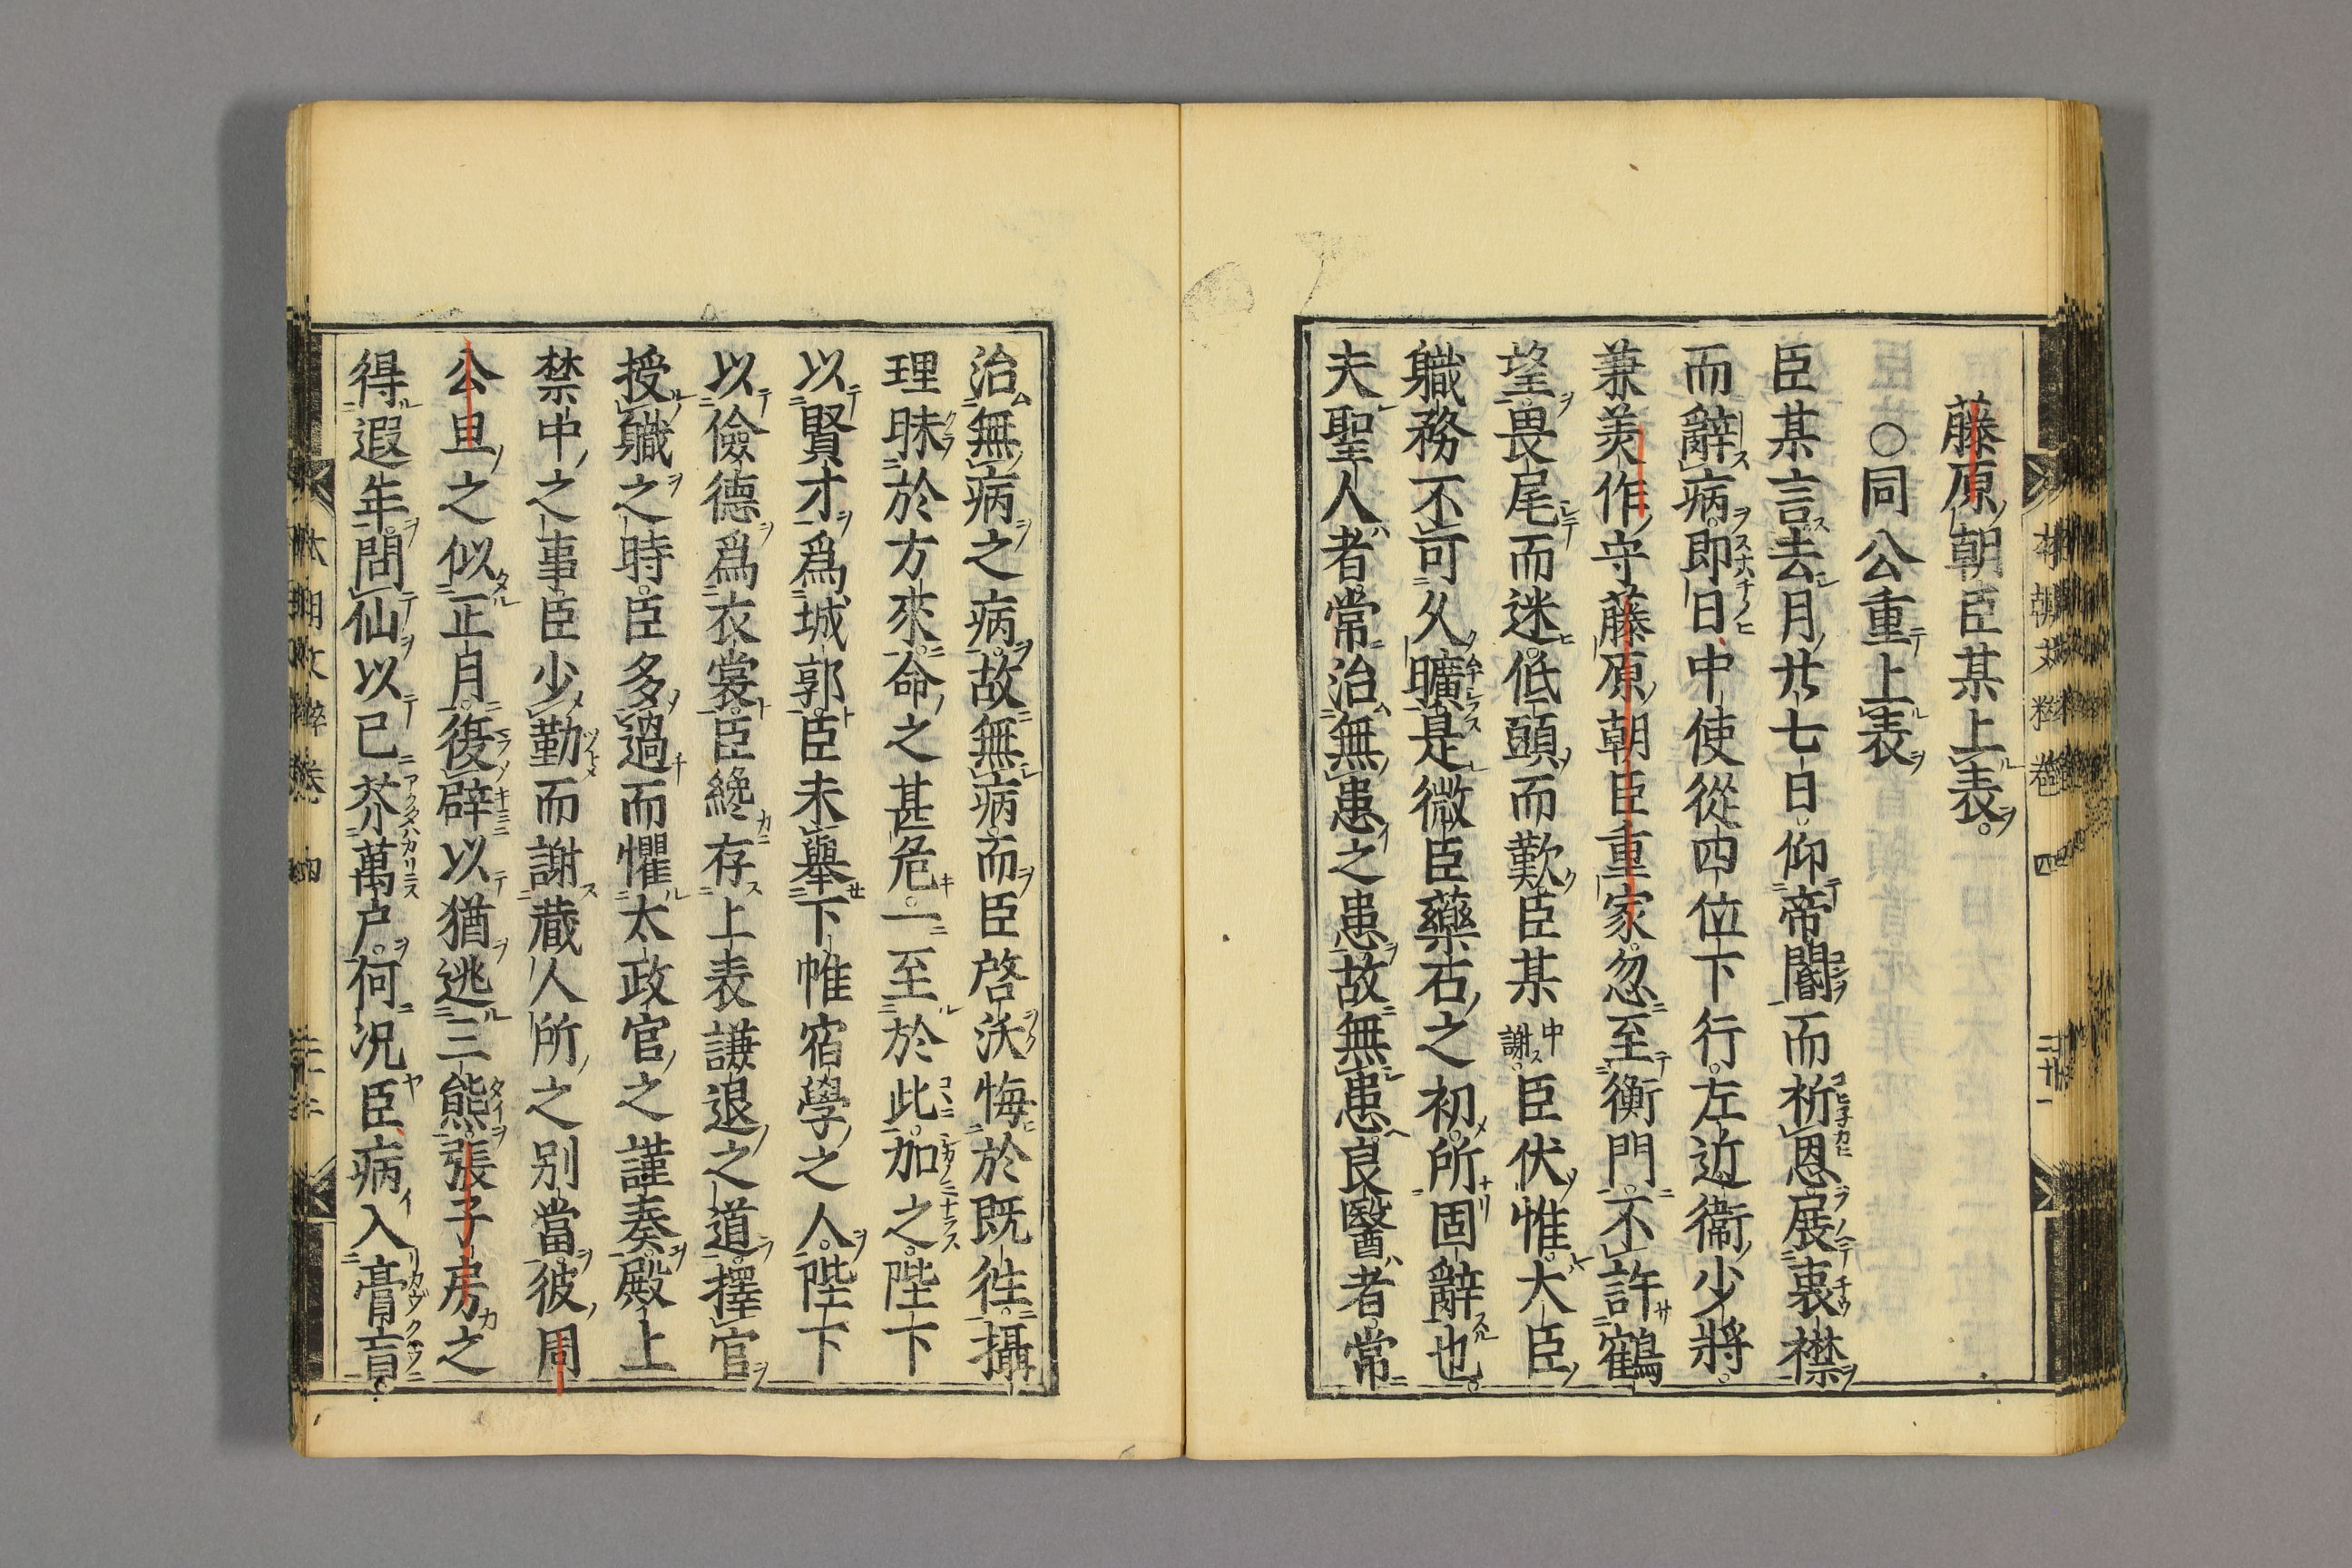 藤原朝臣某上表
○同公重上表
臣某言去月廿七日仰帝閽而祈恩展衷襟
而辭病即日中使從四位下行左近衞少將
兼美作守藤原朝臣重家忽至衡門不許鶴
望畏尾而迷低頭而歎臣某中謝臣伏惟大臣
職務不可久曠是微臣藥石之初所固辭也
夫聖人者常治無患之患故無患良醫者常
治無病之病故無病而臣啓沃悔於既徃攝
理昧於方來命之甚危一至於此加之陛下
以賢才爲城郭臣未舉下帷宿學之人陛下
以儉德爲衣裳臣纔存上表謙退之道擇官
授職之時臣多過而懼太政官之謹奏殿上
禁中之事臣少勤而謝藏人所之別當彼周
公旦之似正月復辟以猶逃三熊張子房之
得遐年問仙以已芥萬户何況臣病入膏肓
本朝文粹卷四